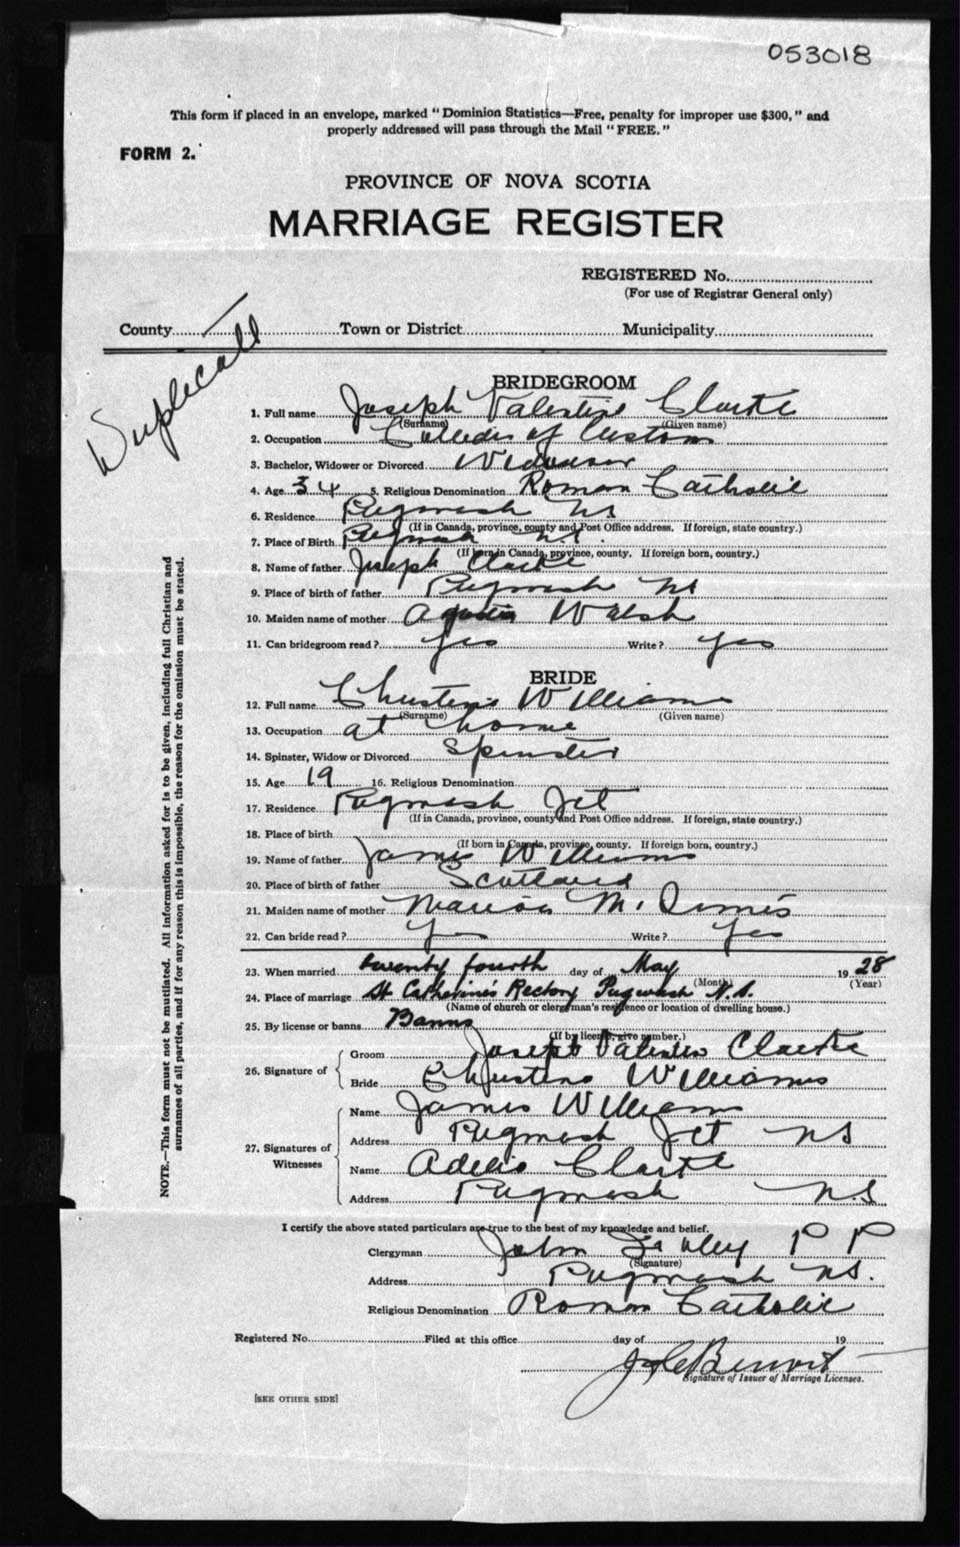 053018
This form if placed in an envelope, marked "Dominion Statistics—Free, penalty for improper use $300," and
properly addressed will pass through the Mail "FREE."
FORM 2.
PROVINCE OF NOVA SCOTIA
MARRIAGE REGISTER
REGISTERED No.
(For use of Registrar General only)
County Town or District Municipality
BRIDEGROOM
1. Full name Joseph Valentine Clarke
(Surname) (Given name)
2. Occupation of Customs
3. Bachelor, Widower or Divorced Widower
4. Age 34 5. Religious Denomination Roman Catholic
6. Residence Pugwash NS
(If in Canada, province, county and Post Office address. If foreign, state country.)
7. Place of Birth Pugwash NS.
(If born in Canada, province, county. If foreign born, country.)
8. Name of father Joseph Clarke
9. Place of birth of father Pugwash NS
10. Maiden name of mother Walsh
11. Can bridegroom read? Yes Write? Yes
BRIDE
12. Full name Christena Williams
(Surname) (Given name)
13. Occupation at home
14. Spinster, Widow or Divorced Spinster
15. Age 19 16. Religious Denomination
17. Residence Pugwash Jct
(If in Canada, province, county and Post Office address. If foreign, state country.)
18. Place of birth
(If born in Canada, province, county. If foreign born, country.)
19. Name of father James Williams
20. Place of birth of father Scotland
21. Maiden name of mother Marion M.
22. Can bride read? Yes Write? Yes
23. When married twenty fourth day of May 1928
(Month) (Year)
24. Place of marriage St Catharine's Rectory Pugwash N.S.
(Name of church or clergyman's residence or location of dwelling house.)
25. By license or banns Banns
(If by license, give number.)
26. Signature of
Groom Joseph Valentine Clarke
Bride Christena Williams
27. Signatures of Witnesses
Name James Williams
Address Pugwash Jct NS
Name Adele Clarke
Address Pugwash N.S
I certify the above stated particulars are true to the best of my knowledge and belief.
Clergyman John P P
(Signature)
Address Pugwash NS.
Religious Denomination Roman Catholic
Registered No. Filed at this office day of 19
Signature of Issuer of Marriage Licenses.
[SEE OTHER SIDE]
NOTE.—This form must not be mutilated. All information asked for is to be given, including full Christian and
surnames of all parties, and if for any reason this is impossible, the reason for the omission must be stated.